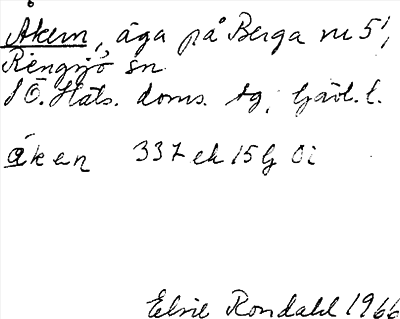 Åkern, äga på Berga nr 5¹,
Rengsjö sn
S Ö. Häls. doms. tg, Gävl. l.
åken 337 ek 15 G Oi
Elsie Rondahl 1966